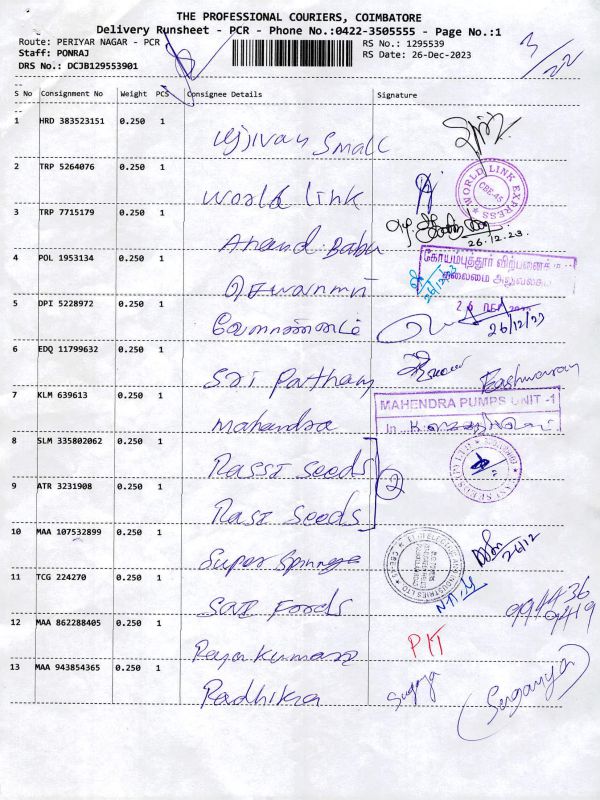 THE PROFESSIONAL COURIERS, COIMBATORE
Delivery Runsheet - PCR - Phone No.:0422-3505555 - Page No.:1
Route: PERIYAR NAGAR - PCR
RS No.: 1295539
3/22
Staff: PONRAJ
RS Date: 26-Dec-2023
DRS No.: DCJB129553901
S No Consignment No Weight PCS Consignee Details Signature
1 HRD 383523151 0.250 1 Ujjivan Small
2 TRP 5264076 0.250 1 World link
WORLD LINK EXPRESS CBE-45
3 TRP 7715179 0.250 1 Anand Babu
26.12.23
4 POL 1953134 0.250 1
கோயமுத்தூர் விற்பனைச்
தலைமை அலுவலக
26/12/23
5 DPI 5228972 0.250 1
26/12/23
6 EDQ 11799632 0.250 1 Sri Partham
Eashwaran
7 KLM 639613 0.250 1 Mahendra
MAHENDRA PUMPS UNIT -1
In
8 SLM 335802062 0.250 1 Rassi Seeds
9 ATR 3231908 0.250 1 Rasi Seeds
2
10 MAA 107532899 0.250 1 Super Spinnge
26/12
11 TCG 224270 0.250 1 SAI Foods
994436
9419
12 MAA 862288405 0.250 1 Rajakumar
P/T
13 MAA 943854365 0.250 1 Radhika
Suganya
(Suganya)